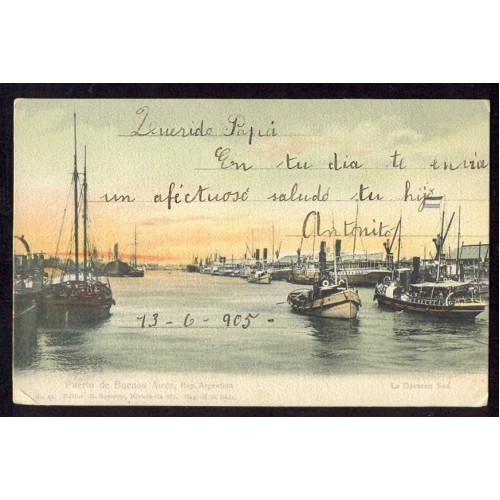 Querido Papá
En tu dia te envia
un aféctuoso saludo tu hijo
Antonito
13-6-905-
Puerto de Buenos Aires, Rep. Argentina
La Dársena Sud
Editor R. Rosauer, Rivadavia 571.